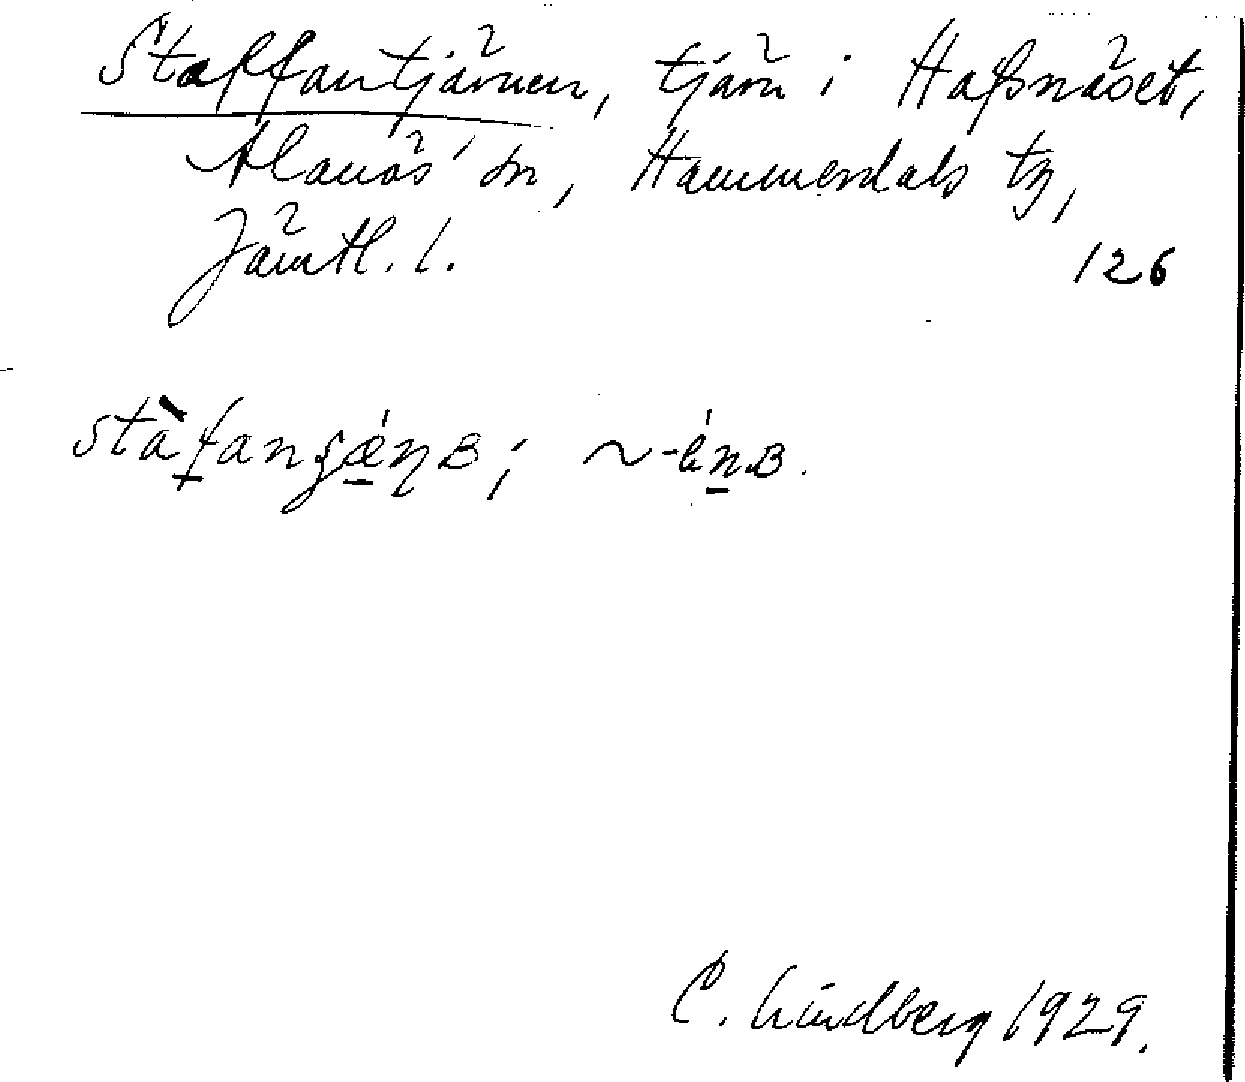 Staffantjärnen, tjärn i Hafsnäset,
Alanäs sn, Hammerdals tg,
Jämtl. l.
126
stàfanʂǽɳʙ; ~-ǽnʙ.
C. Lindberg 1929.